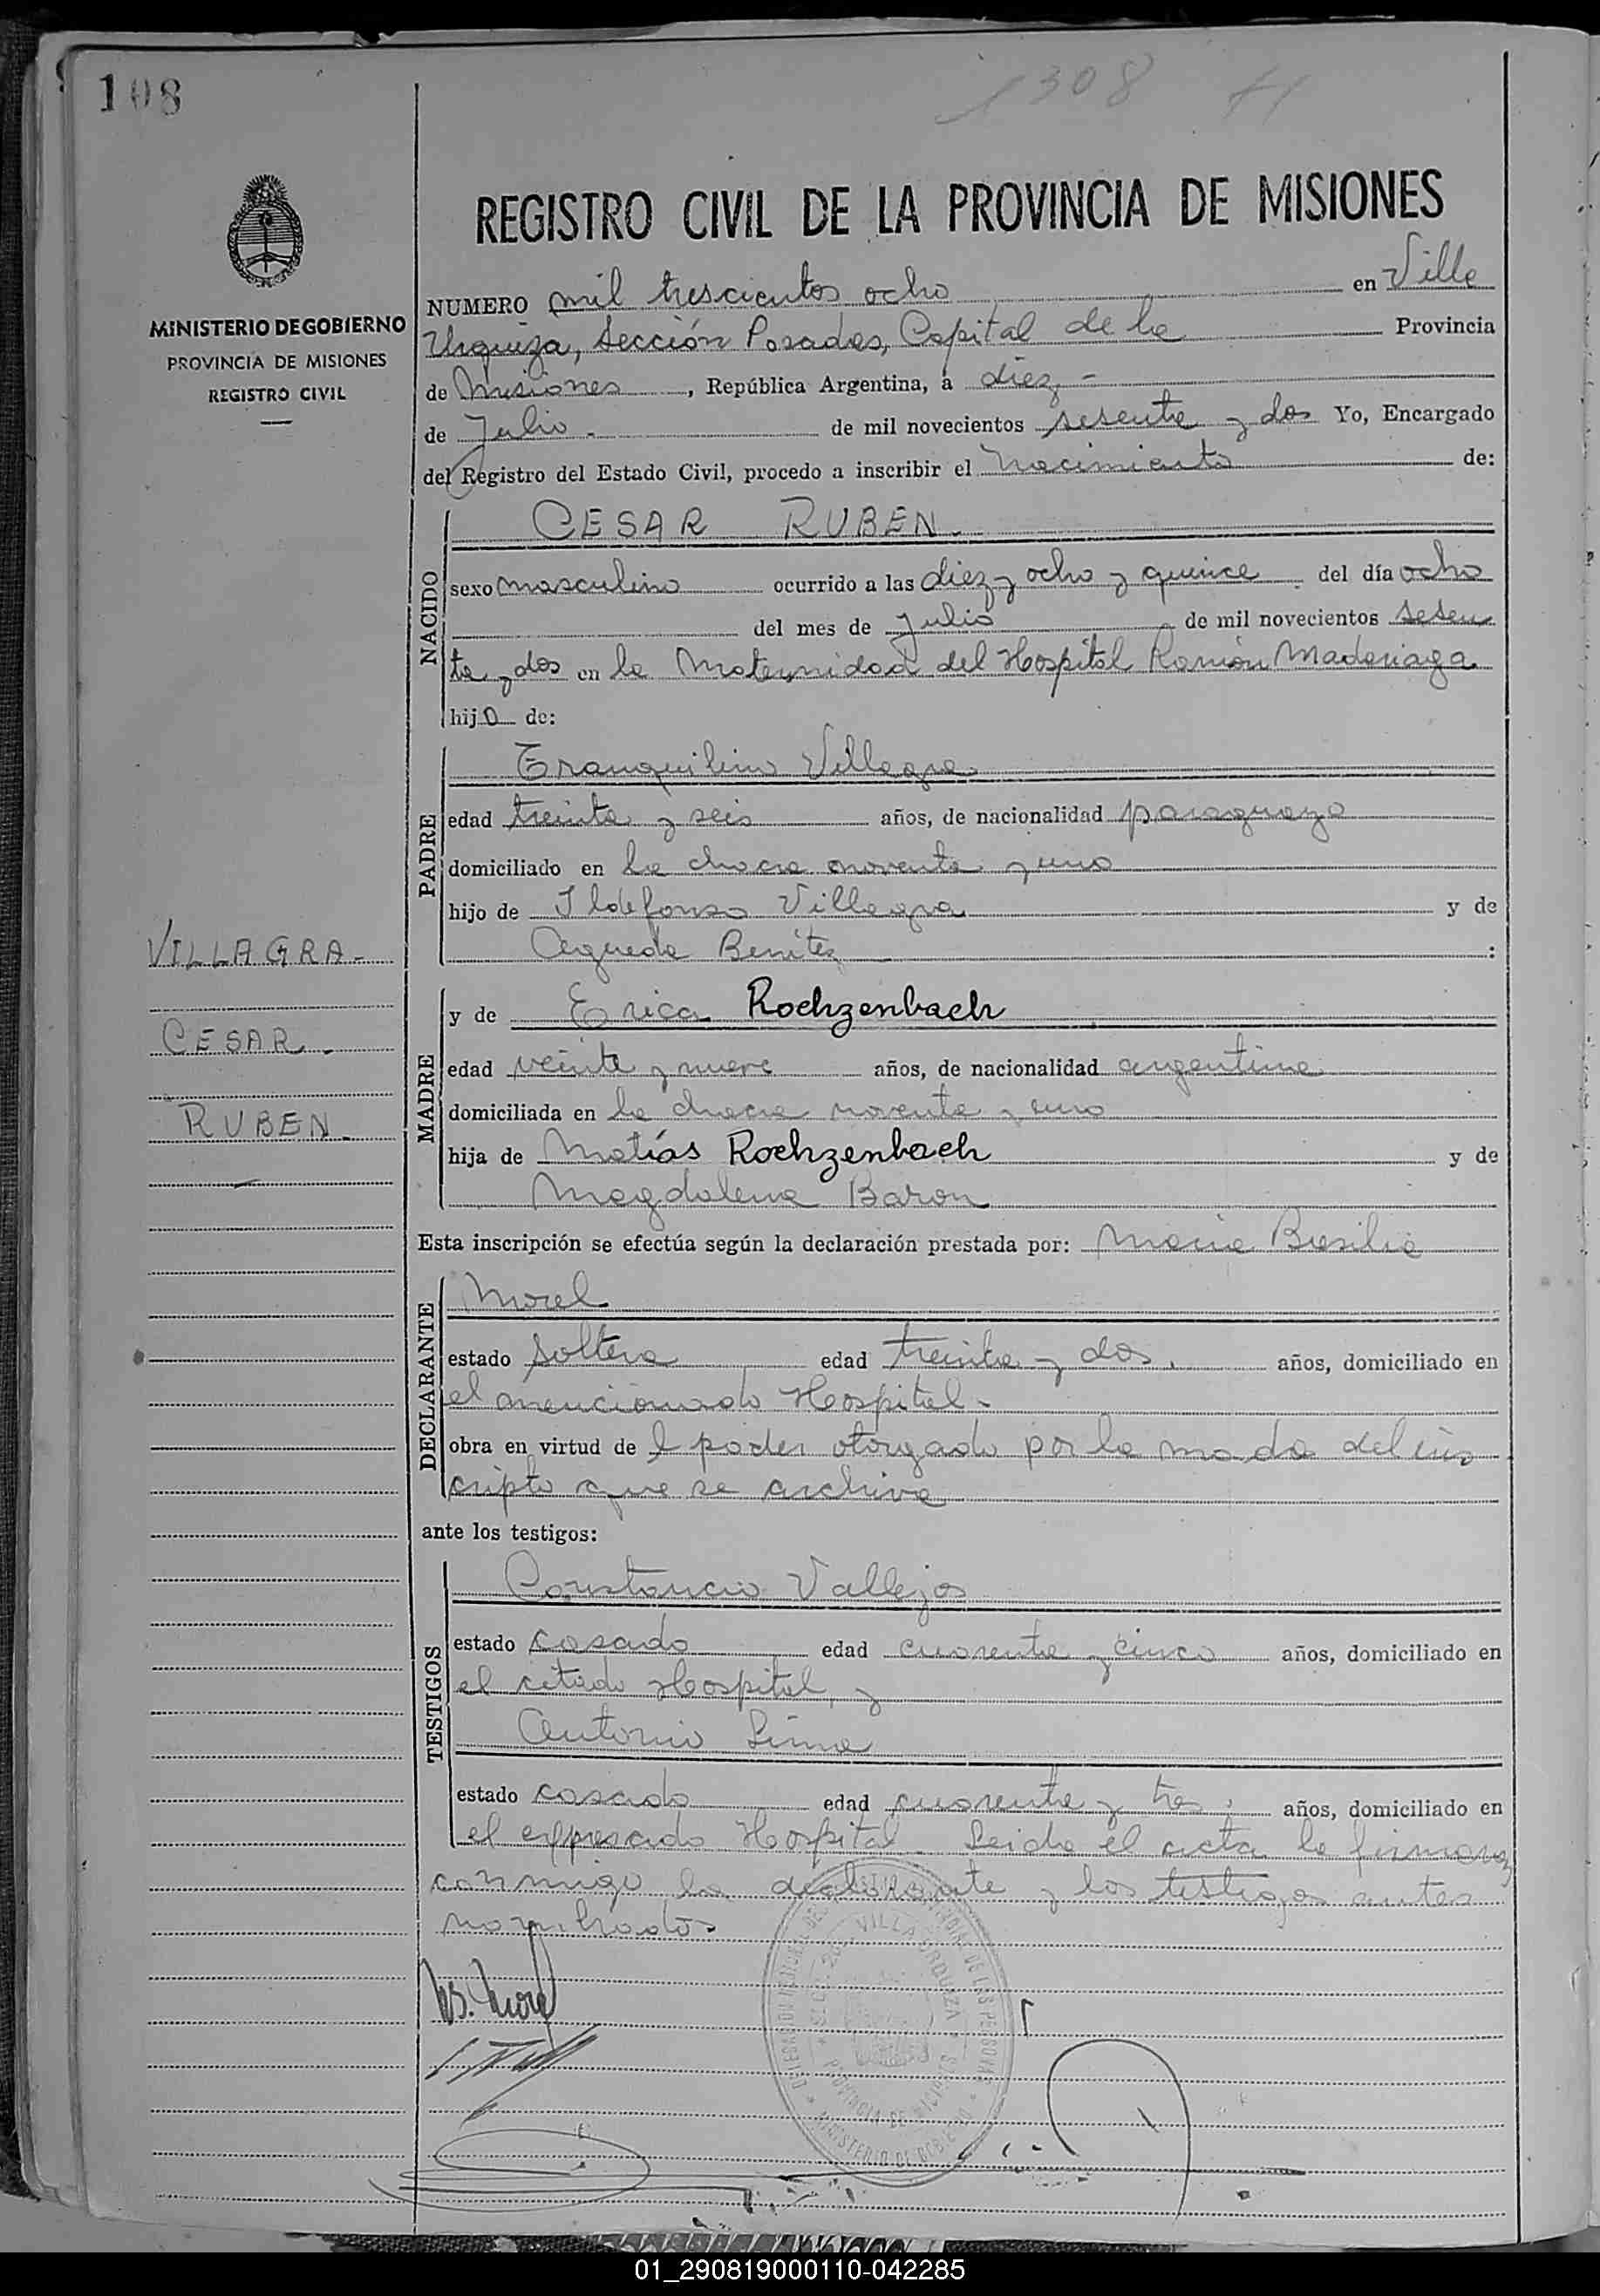 108
1308 H
REGISTRO CIVIL DE LA PROVINCIA DE MISIONES
MINISTERIO DE GOBIERNO
PROVINCIA DE MISIONES
REGISTRO CIVIL
NUMERO mil trescientos ocho en Villa
Urquiza, Sección Posadas, Capital de la Provincia
de Misiones, República Argentina, a diez -
de Julio - de mil novecientos sesenta y dos Yo, Encargado
del Registro del Estado Civil, procedo a inscribir el Nacimiento de:
CESAR RUBEN.
NACIDO
sexo masculino ocurrido a las diez y ocho y quince del día ocho
del mes de Julio de mil novecientos sesen
ta y dos en la Maternidad del Hospital Ramón Madariaga
hijo de:
PADRE
Tranquilino Villagra
edad treinta y seis años, de nacionalidad paraguaya
domiciliado en la chacra noventa y uno
hijo de Ildefonso Villagra y de
Agueda Benítez :
VILLAGRA -
CESAR -
RUBEN -
MADRE
y de Erica Rochzenbach
edad veinte y nueve años, de nacionalidad argentina
domiciliada en la chacra noventa y uno
hija de Matías Rochzenbach y de
Magdalena Baron
Esta inscripción se efectúa según la declaración prestada por: María Basilia
DECLARANTE
Morel
estado soltera edad treinta y dos, años, domiciliado en
el mencionado Hospital -
obra en virtud de l poder otorgado por la madre del ins
cripto que se archiva
ante los testigos:
TESTIGOS
Constancio Vallejos
estado casado edad cuarenta y cinco años, domiciliado en
el citado Hospital, y
Antonio Lima
estado casado edad cuarenta y tres, años, domiciliado en
el expresado Hospital. Leida el acta la firman
conmigo la declarante y los testigos antes
nombrados.
B. Morel
VILLA URQUIZA
PROVINCIA DE MISIONES
MINISTERIO DE GOBIERNO
01_290819000110-042285